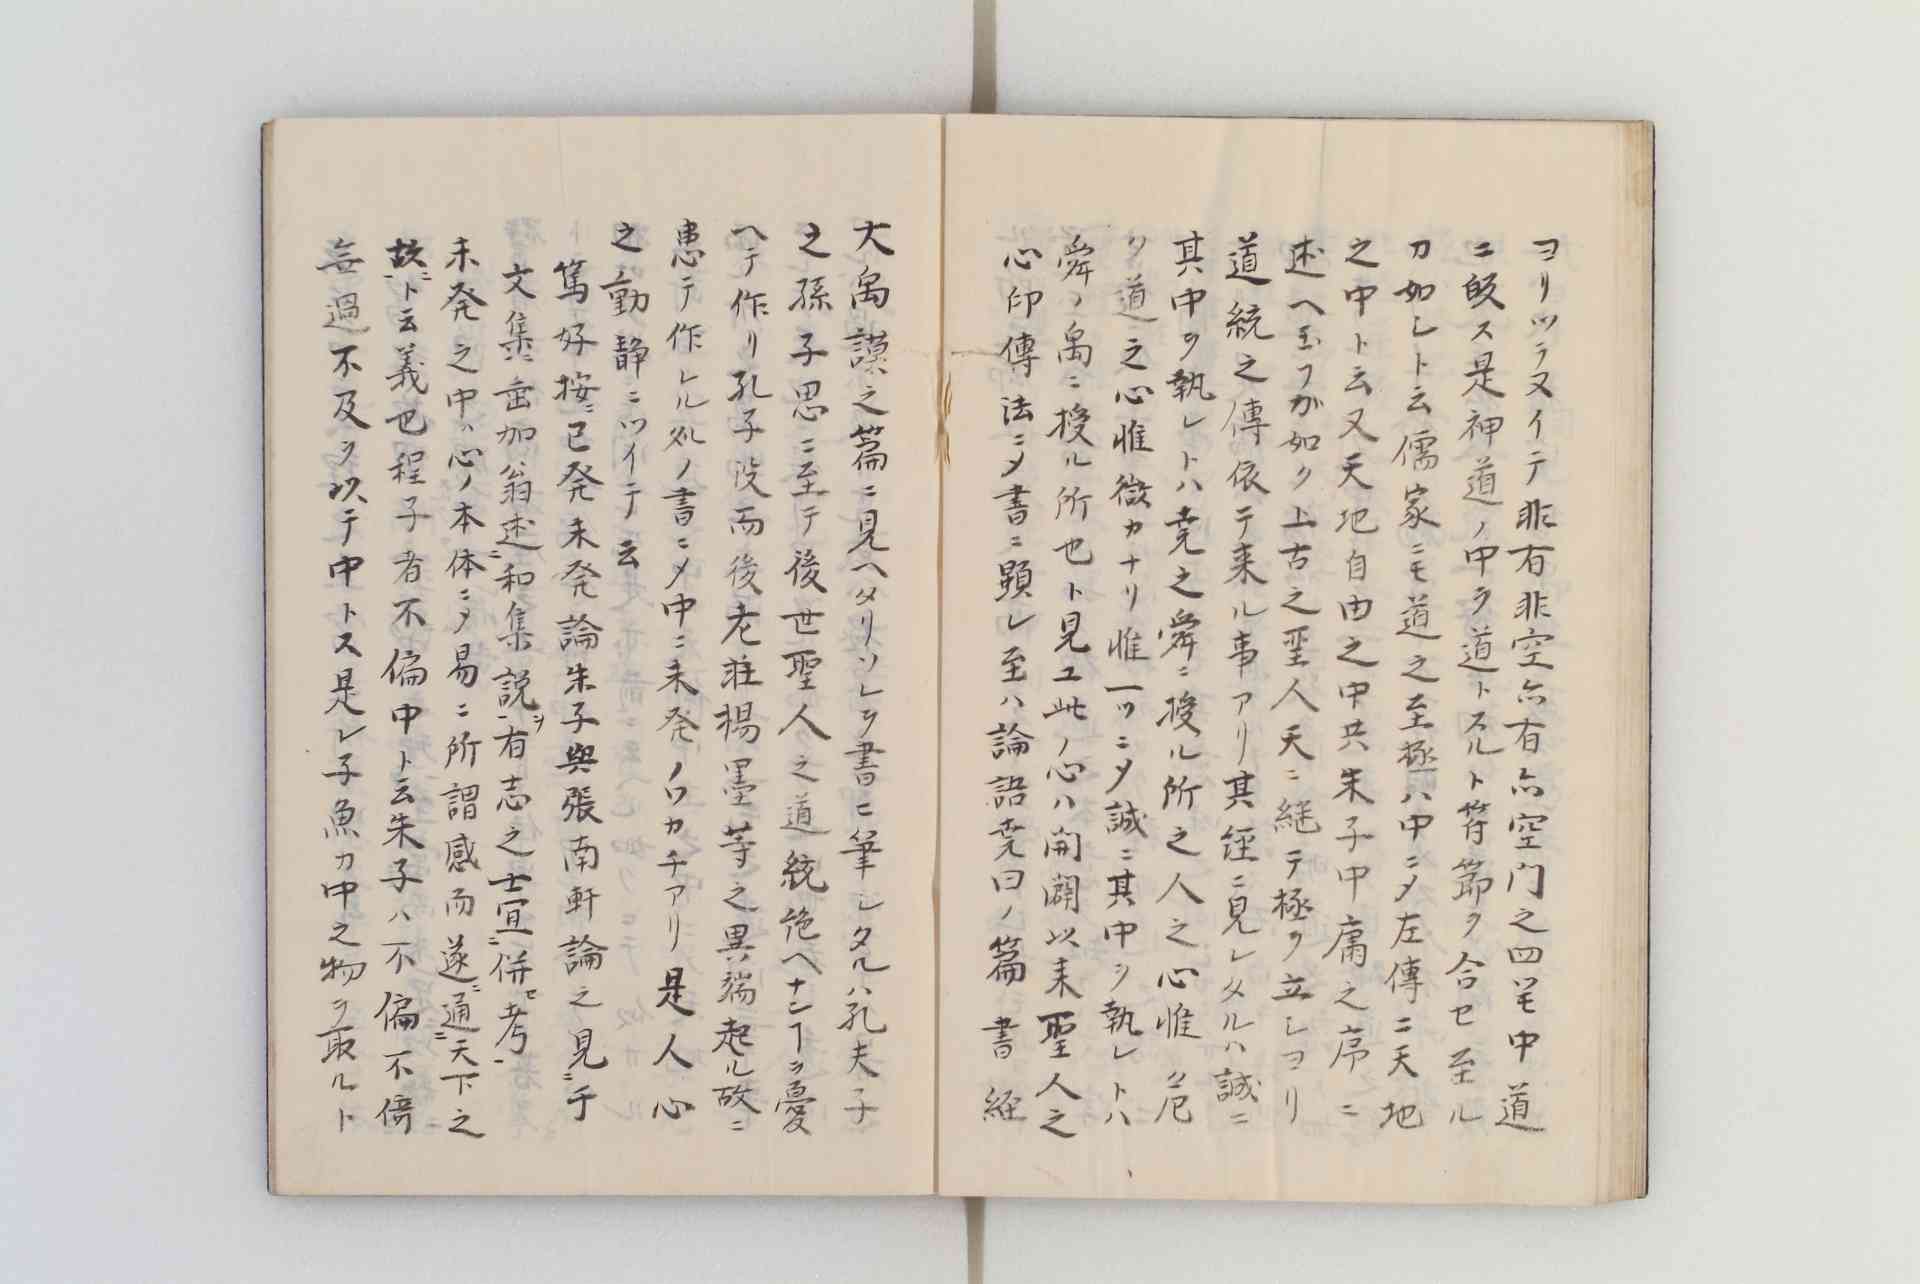 ヨリツラヌイテ非有非空亦有亦空門之四モ中道
ニ皈ス是神道ノ中ヲ道トスルト符節ヲ合セ至ル
カ如シト云儒家ニモ道之至極ハ中ニメ左傳ニ天地
之中ト云又天地自由之中共朱子中庸之序ニ
述ヘ玉フガ如ク上古之聖人天ニ継テ極ヲ立シヨリ
道統之傳依テ来ル事アリ其経ニ見レタルハ誠ニ
其中ヲ執レトハ堯之舜ニ授ル所之人之心惟危
ク道之心惟微カナリ惟一ツニメ誠ニ其中ヲ執レトハ
舜ノ禹ニ授ル所也ト見ユ此ノ心ハ開闢以来聖人之
心印傳法ニメ書ニ顕レ至ハ論語堯曰ノ篇書経
大禹謨之篇ニ見ヘタリソレヲ書ニ筆シタルハ孔夫子
之孫子思ニ至テ後世聖人之道統絶ヘナンヿヲ憂
ヘテ作リ孔子没而後老荘楊墨等之異端起ル故ニ
患テ作レル処ノ書ニメ中ニ未発ノワカチアリ是人心
之動静ニツイテ云
篤好按ニ已発未発論朱子與張南軒論之見ニ于
文集ニ垂加翁述ニ和集説ヲ一有志之士宜ニ併セ考一
未発之中ハ心ノ本体ニメ易ニ所謂感而遂ニ通ニ天下之
故ニ一ト云義也程子者不偏中ト云朱子ハ不偏不倚
無過不及ヲ以テ中トス是レ子魚カ中之物ヲ取ルト